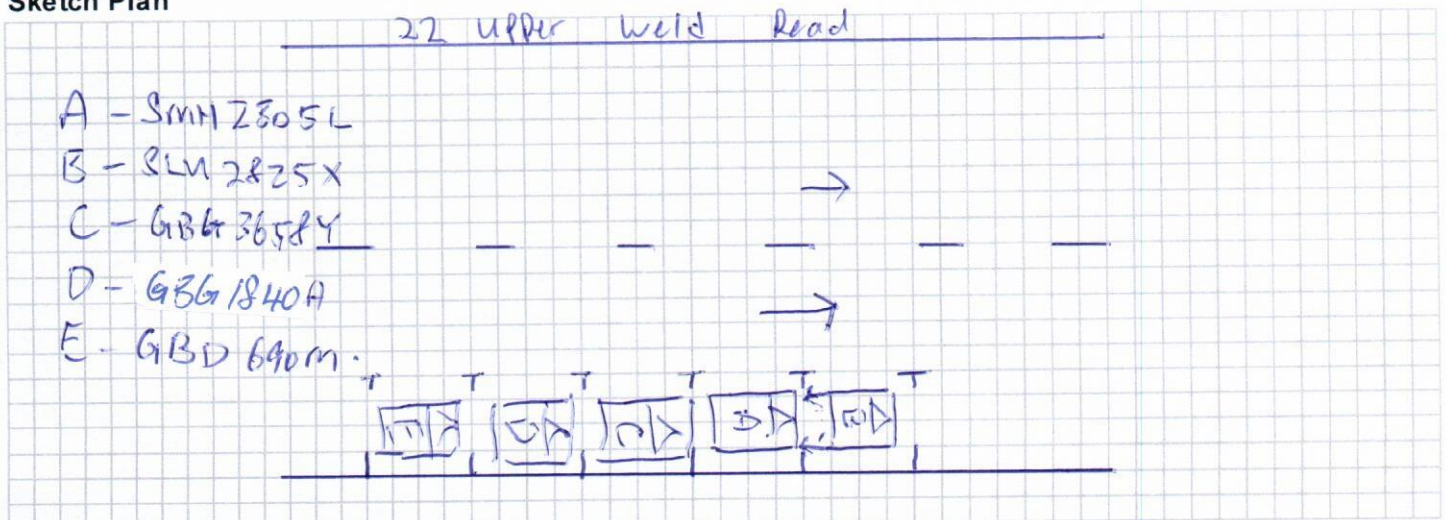 Sketch Plan
22 Upper Weld Road
A - SMH 2305L
B - SLU 2825X
C - GBG 3658Y
D - GBG 1840A
E - GBD 690M.
T T T T T T